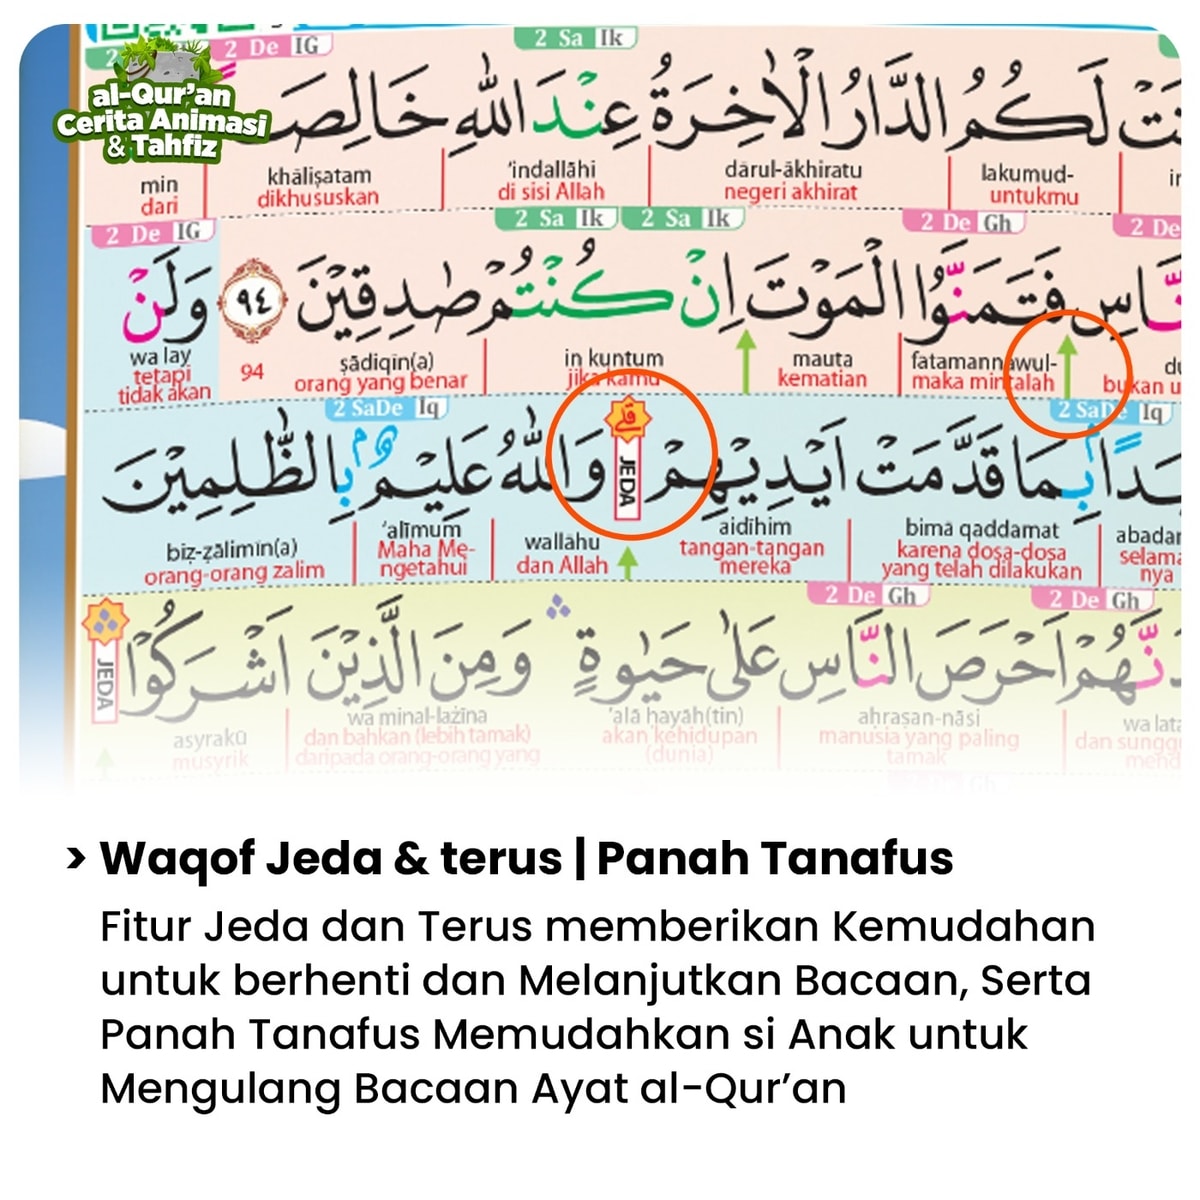 al-Qur’an
Cerita Animasi
& Tahfiz
2 De IG
2 Sa Ik
لَكُمُ الدَّارُ الْاٰخِرَةُ عِنْدَ اللّٰهِ خَالِصَ
lakumud- dārul-ākhiratu ‘indallāhi khāliṣatam min
untukmu negeri akhirat di sisi Allah dikhususkan dari
2 De IG 2 Sa Ik 2 Sa Ik 2 De Gh 2 De
فَتَمَنَّوُا الْمَوْتَ اِنْ كُنْتُمْ صٰدِقِيْنَ ٩٤ وَلَنْ
fatamannawul- mauta in kuntum ṣādiqīn(a) 94 wa lay
maka mintalah kematian jika kamu orang yang benar tetapi
tidak akan
2 SaDe Iq 2 SaDe Iq
بِمَا قَدَّمَتْ اَيْدِيْهِمْ ۗ JEDA وَاللّٰهُ عَلِيْمٌ بِالظّٰلِمِيْنَ
bimā qaddamat aidīhim wallāhu ‘alīmum biẓ-ẓālimīn(a)
karena dosa-dosa tangan-tangan dan Allah Maha Me- orang-orang zalim
yang telah dilakukan mereka ngetahui
2 De Gh 2 De Gh
اَحْرَصَ النَّاسِ عَلٰى حَيٰوةٍ ۛ وَمِنَ الَّذِيْنَ اَشْرَكُوْا ۛ JEDA
aḥraṣan-nāsi ‘alā ḥayāh(tin) wa minal-lażīna asyrakū
manusia yang paling akan kehidupan dan bahkan (lebih tamak) musyrik
tamak (dunia) daripada orang-orang yang
› Waqof Jeda & terus | Panah Tanafus
Fitur Jeda dan Terus memberikan Kemudahan
untuk berhenti dan Melanjutkan Bacaan, Serta
Panah Tanafus Memudahkan si Anak untuk
Mengulang Bacaan Ayat al-Qur’an